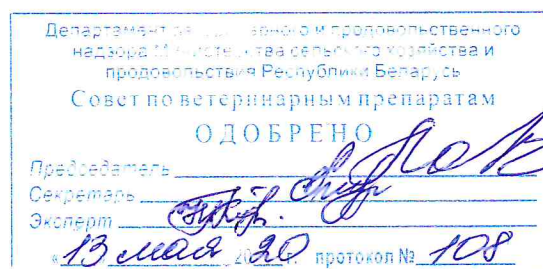 Департамент ветеринарного и продовольственного
надзора Министерства сельского хозяйства и
продовольствия Республики Беларусь
Совет по ветеринарным препаратам
ОДОБРЕНО
Председатель
Секретарь
Эксперт
«13 мая 2020 г. протокол № 108